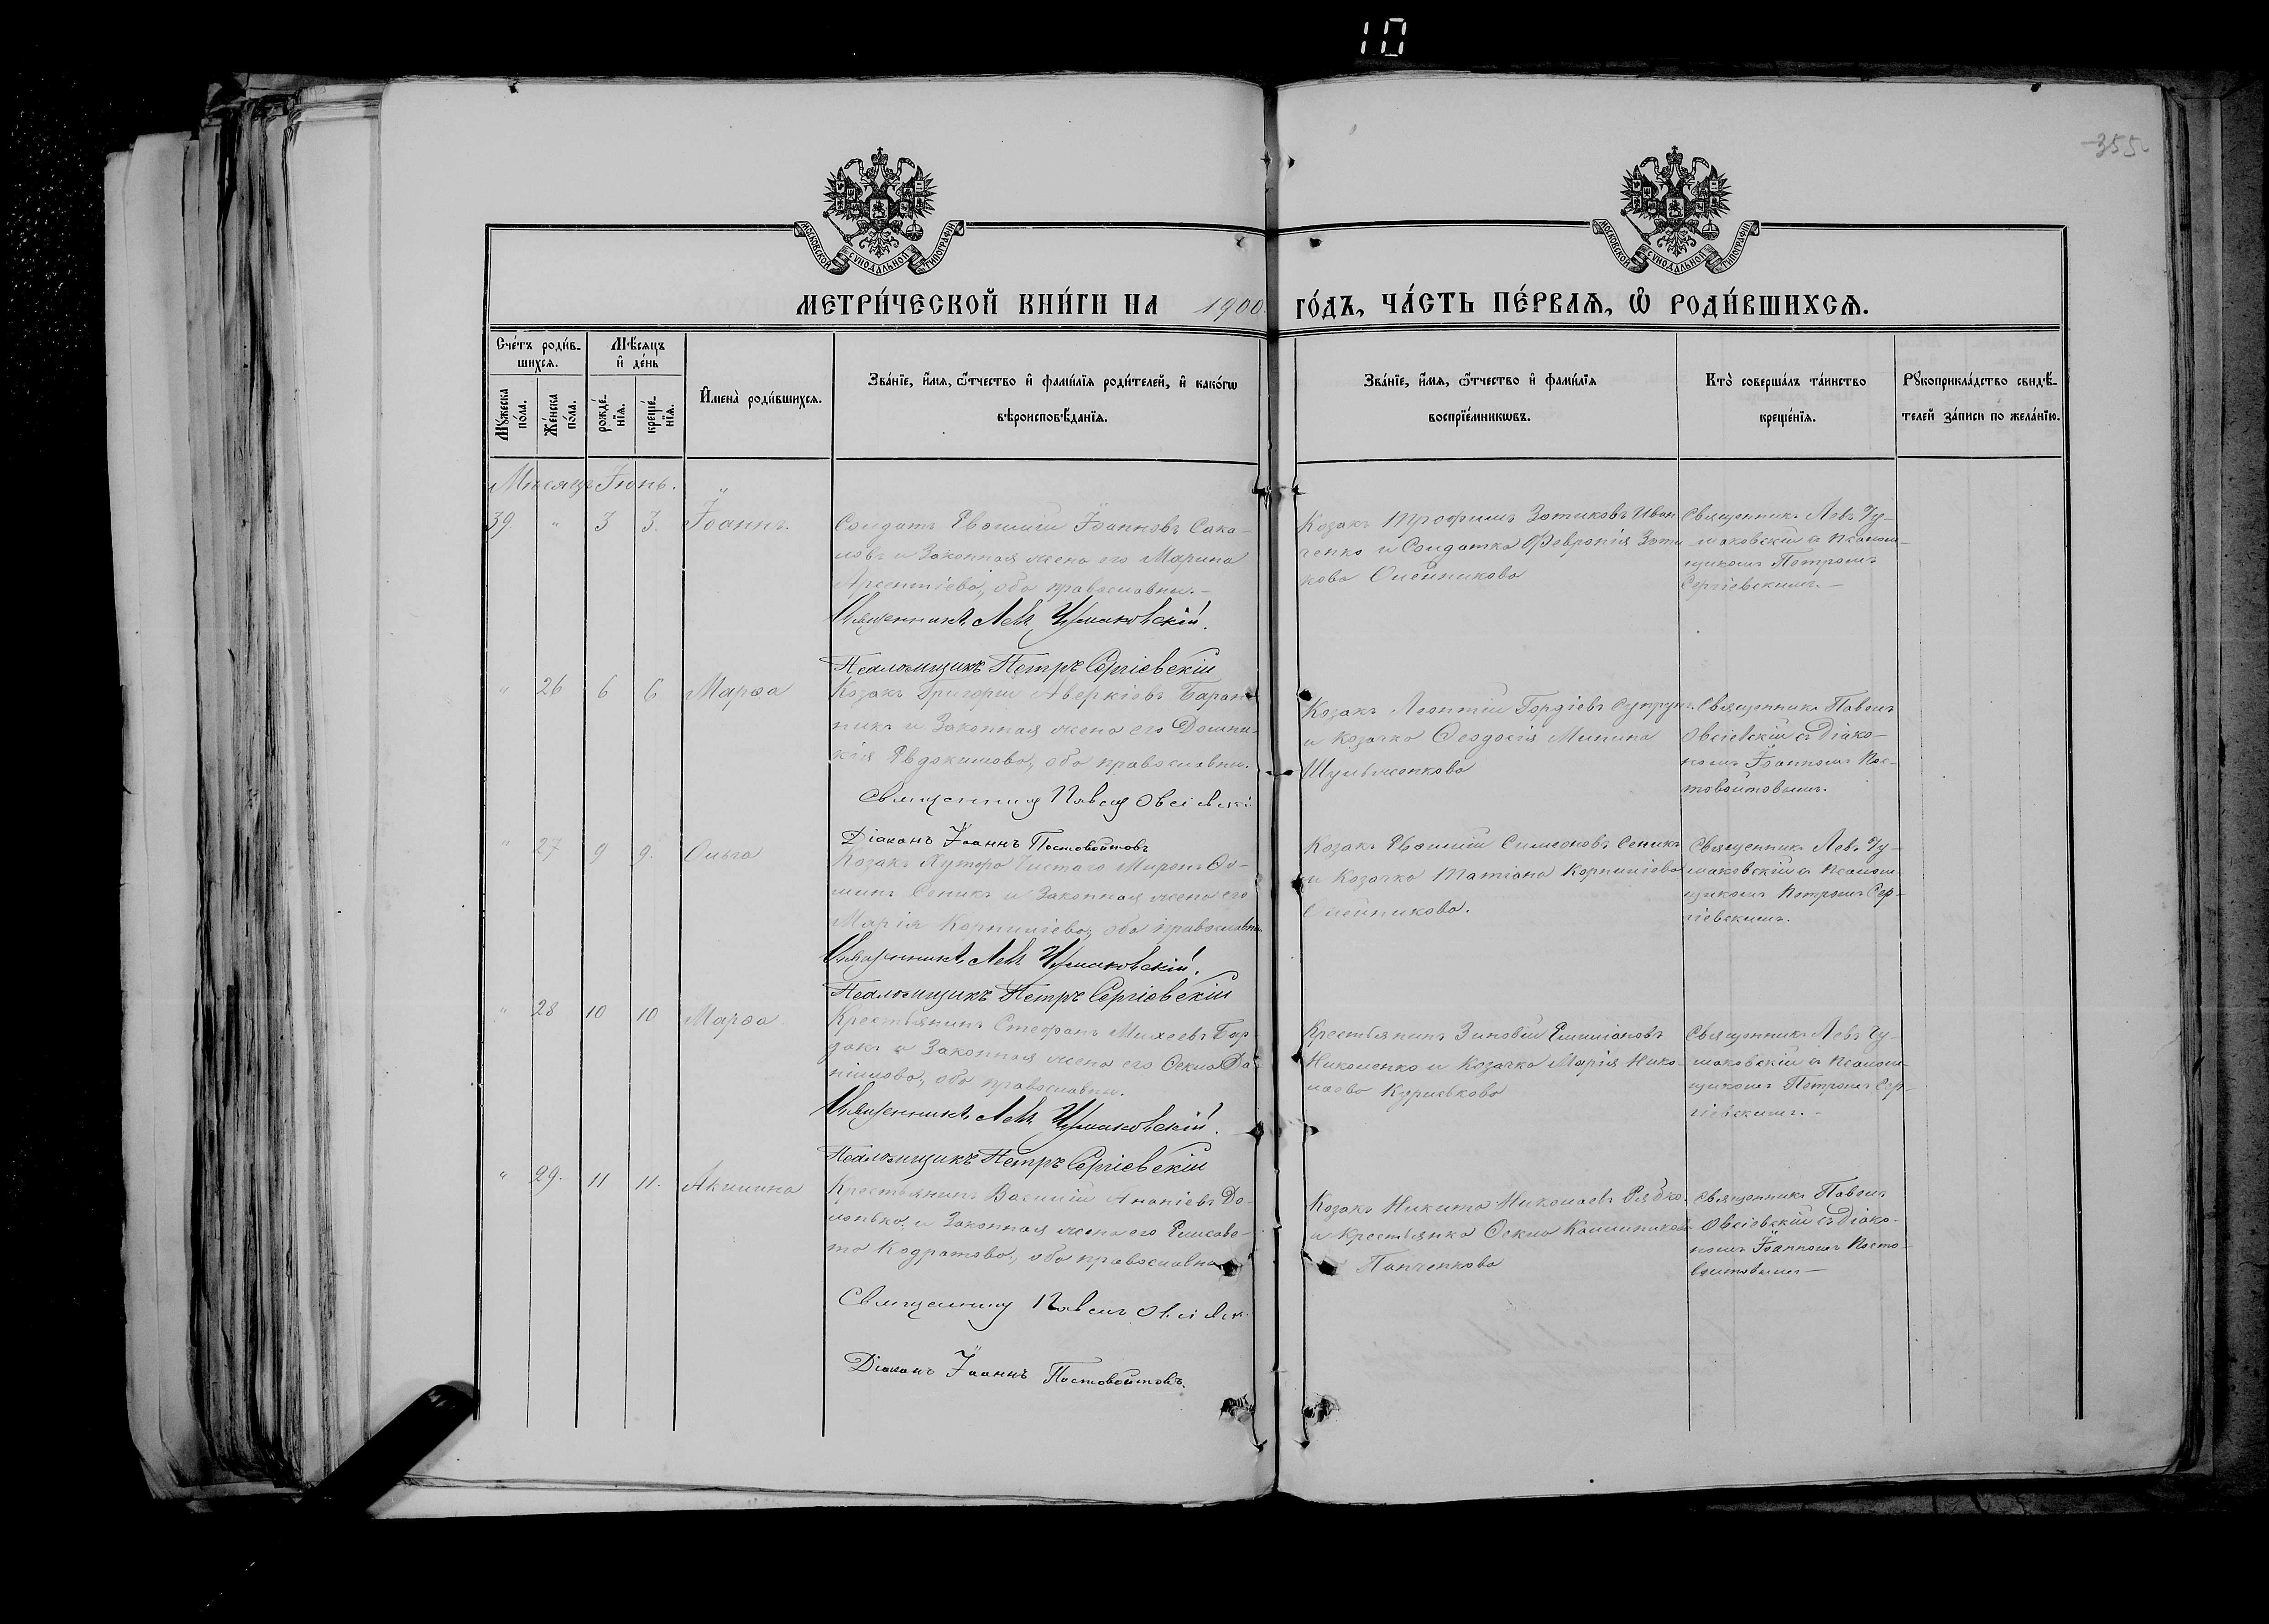 10
355
МОСКОВСКОЙ СѴНОДАЛЬНОЙ ТИПОГРАФІИ
МОСКОВСКОЙ СѴНОДАЛЬНОЙ ТИПОГРАФІИ
МЕТРИ́ЧЕСКОЙ КНИ́ГИ НА 1900 ГО́ДЪ, ЧА́СТЬ ПЕ́РВАѦ, Ѡ҆ РОДИ́ВШИХСѦ.
Сче́тъ роди́в-
шихсѧ.
Мꙋ́жеска по́ла.
Же́нска по́ла.
Мѣ́сѧцъ
и҆ де́нь
рожде́-
нїѧ.
креще́-
нїѧ.
И҆мена̀ роди́вшихсѧ.
Зва́нїе, и҆́мѧ, ѻ҆́тчество и҆ фами́лїѧ роди́телей, и҆ како́гѡ
вѣроисповѣ́данїѧ.
Зва́нїе, и҆́мѧ, ѻ҆́тчество и҆ фами́лїѧ
воспрїе́мникѡвъ.
Кто̀ соверша́лъ та́инство
креще́нїѧ.
Рꙋкоприкла́дство свидѣ́-
телей за́писи по жела́нїю.
Мѣсяцъ Іюнь.
39 " 3 3. Іоаннъ.
Солдатъ Евѳимій Іоанновъ Сака-
ловъ и Законная жена его Марина
Арсентіева, оба православны.-
Священникъ Левъ Чумаковскій.
Псаломщикъ Петръ Сергіевскій
Козакъ Трофимъ Зотиковъ Иван
ченко и Солдатка Февронія Зоти
кова Олейникова
Священникъ Левъ Чу-
маковскій съ псалом-
щикомъ Петромъ
Сергіевскимъ.-
" 26 6 6 Марѳа
Козакъ Григорій Аверкіевъ Баран
никъ и Законная жена его Домни-
кія Евдокимова, оба православны.
Священникъ Павелъ Овсіевскій
Діаконъ Іоаннъ Постовойтовъ
Козакъ Леонтій Гордіевъ Супрунъ
и Козачка Ѳеодосія Минина
Шульженкова
Священникъ Павелъ
Овсіевскій съ Діако-
номъ Іоанномъ Пос-
товойтовымъ.
" 27 9 9. Ольга
Козакъ Хутора Чистаго Миронъ Ѳо-
минъ Сеникъ и Законная жена его
Марія Корниліева, оба православны
Священникъ Левъ Чумаковскій.
Псаломщикъ Петръ Сергіевскій
Козакъ Евѳимій Симеоновъ Сеникъ
и Козачка Татіана Корниліева
Олейникова.
Священникъ Левъ Чу-
маковскій съ псалом-
щикомъ Петромъ Сер-
гіевскимъ.
" 28 10 10 Марѳа
Крестьянинъ Стефанъ Михеевъ
и Законная жена его Ѳекла Да-
ніилова, оба православны.
Священникъ Левъ Чумаковскій.
Псаломщикъ Петръ Сергіевскій
Крестьянинъ Зиновій Емиліановъ
Николенко и Козачка Марія Нико-
лаева
Священникъ Левъ Чу-
маковскій съ псалом-
щикомъ Петромъ Сер-
гіевскимъ.-
" 29. 11 11. Акилина
Крестьянинъ Василій Ананіевъ До-
ленько, и Законная жена его Елисаве-
та Кодратова, оба православны
Священникъ Павелъ Овсіевск
Діаконъ Іоаннъ Постовойтовъ.
Козакъ Никита Николаевъ Рябко
и Крестьянка Ѳекла Каллиникова
Панченкова
Священникъ Павелъ
Овсіевскій съ Діако-
номъ Іоанномъ Посто-
войтовымъ-